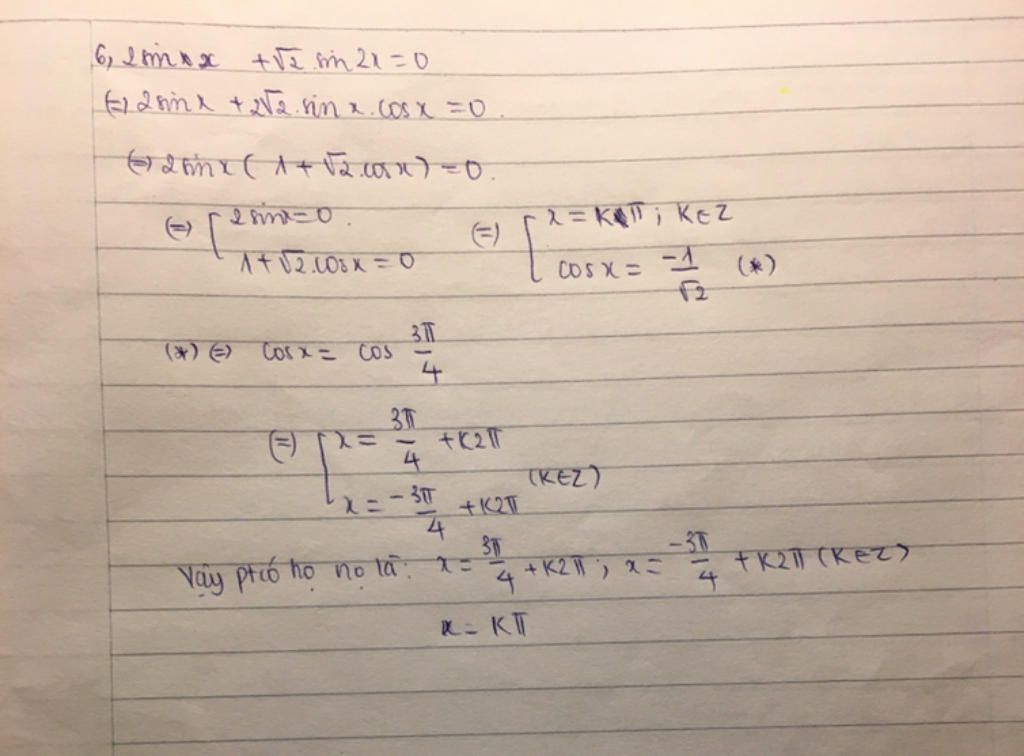 6, 2sin x + √2 . sin 2x = 0
(=) 2sin x + 2√2 . sin x . cos x = 0 .
(=) 2sin x ( 1 + √2 . cos x ) = 0 .
(=) [ 2 sin x = 0 . (=) [ x = Kπ ; K∈Z
1 + √2 . cos x = 0 cos x = -1/√2 (*)
(*) (=) cos x = cos 3π/4
(=) [ x = 3π/4 + K2π
x = -3π/4 + K2π (K∈Z)
Vậy pt có họ no là: x = 3π/4 + K2π ; x = -3π/4 + K2π (K∈Z)
x = Kπ